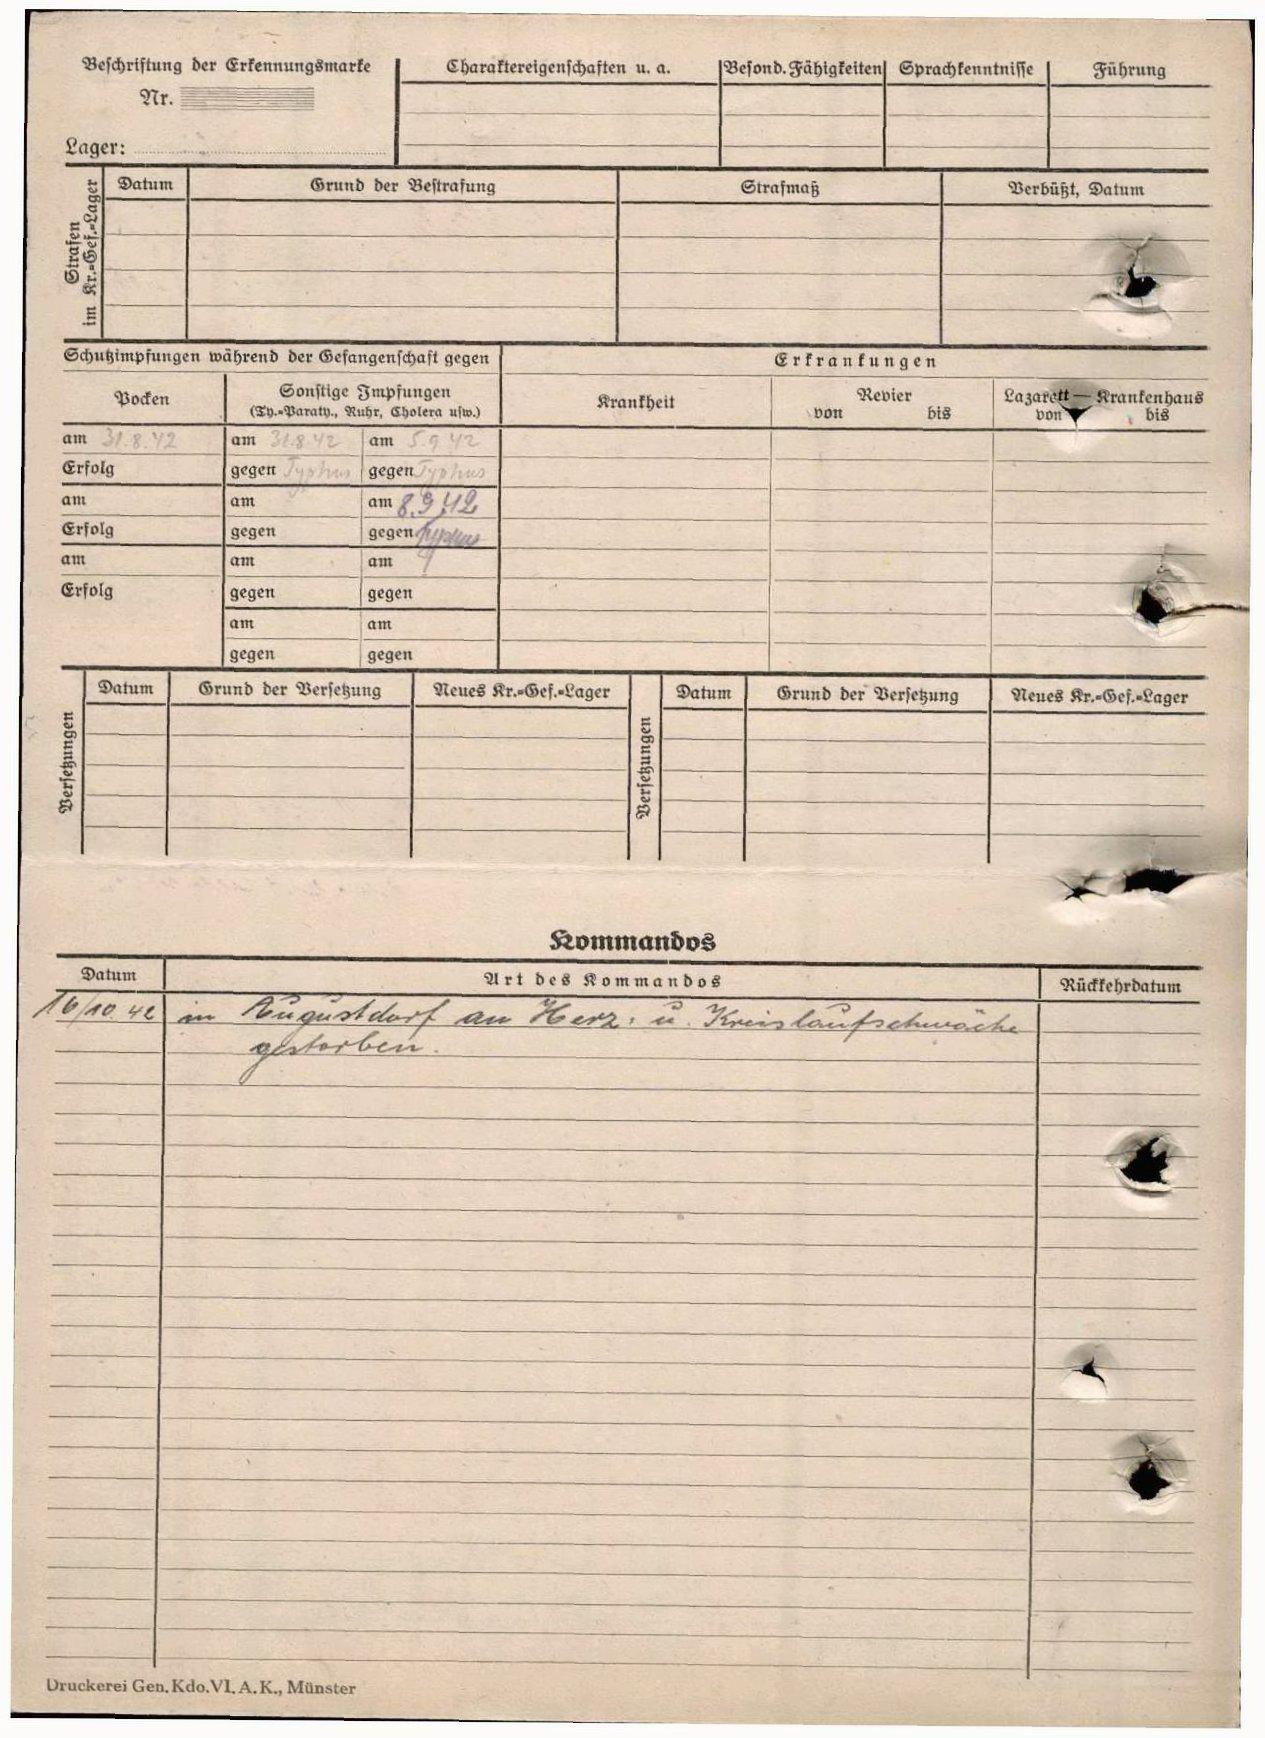 Beschriftung der Erkennungsmarke
Nr.
Lager:
Charaktereigenschaften u. a.
Besond. Fähigkeiten
Sprachkenntnisse
Führung
Strafen
im Kr.=Gef.=Lager
Datum
Grund der Bestrafung
Strafmaß
Verbüßt, Datum
Schutzimpfungen während der Gefangenschaft gegen
Erkrankungen
Pocken
Sonstige Impfungen
(Ty.=Paraty., Ruhr, Cholera usw.)
Krankheit
Revier
von bis
Lazarett — Krankenhaus
von bis
am 31.8.42 am 31.8.42 am 5.9.42
Erfolg gegen Typhus gegen Typhus
am am am 8.9.42
Erfolg gegen gegen Typhus
am am am
Erfolg gegen gegen
am am
gegen gegen
Versetzungen
Datum Grund der Versetzung Neues Kr.=Gef.=Lager
Versetzungen
Datum Grund der Versetzung Neues Kr.=Gef.=Lager
Kommandos
Datum Art des Kommandos Rückkehrdatum
16/10.42 in Augustdorf an Herz. u. Kreislaufschwäche
gestorben.
Druckerei Gen. Kdo. VI. A. K., Münster